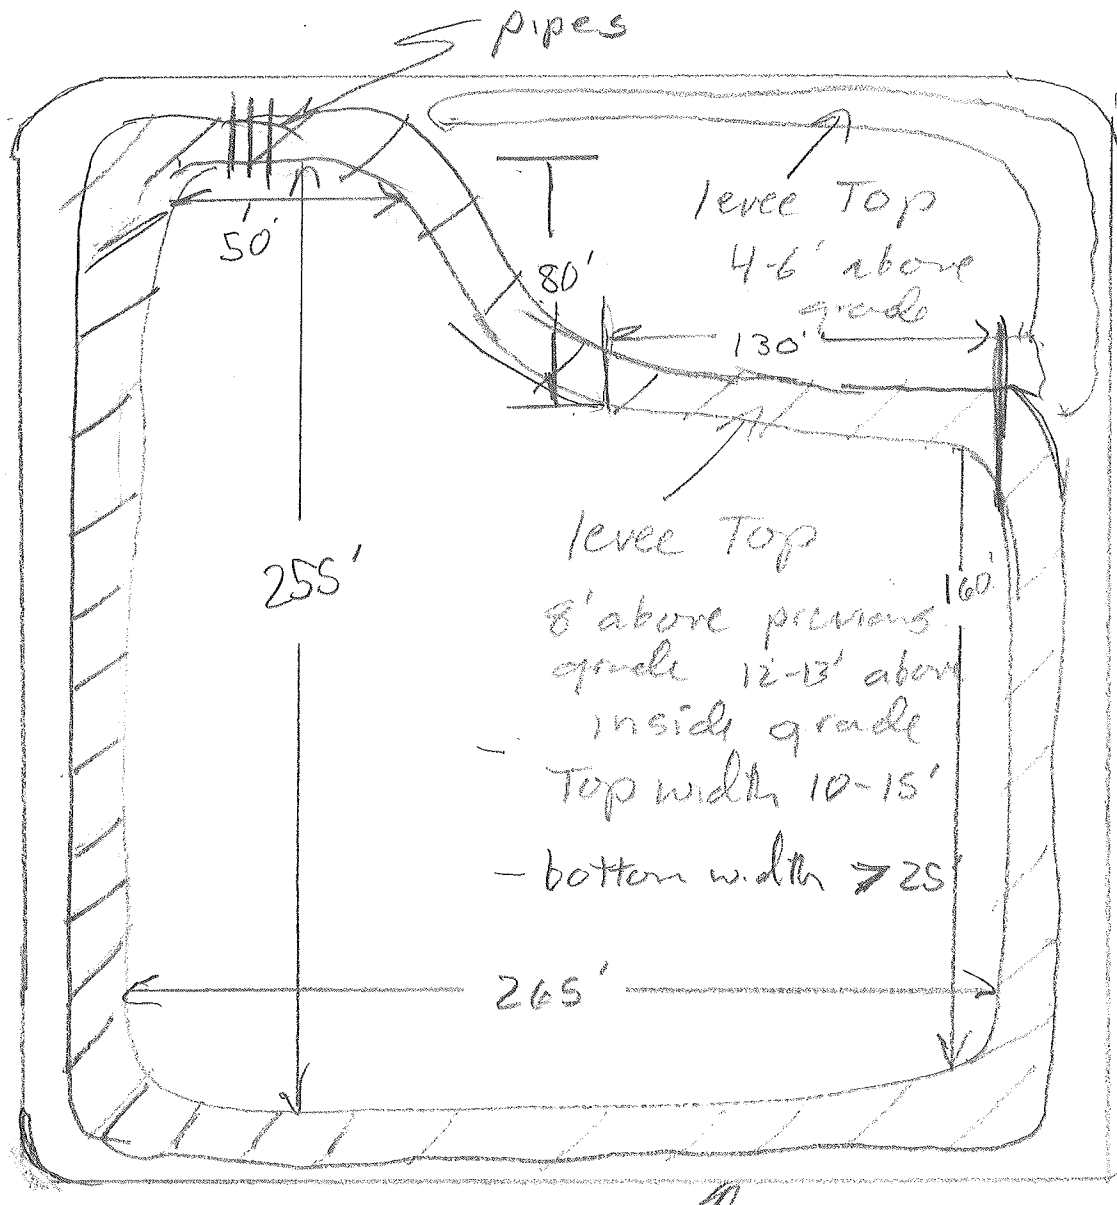 pipes
levee Top
4-6' above
grade
50'
80'
130'
255'
levee Top
8' above previous
grade 12-13' above
inside grade
Top width 10-15'
- bottom width > 25'
160'
265'